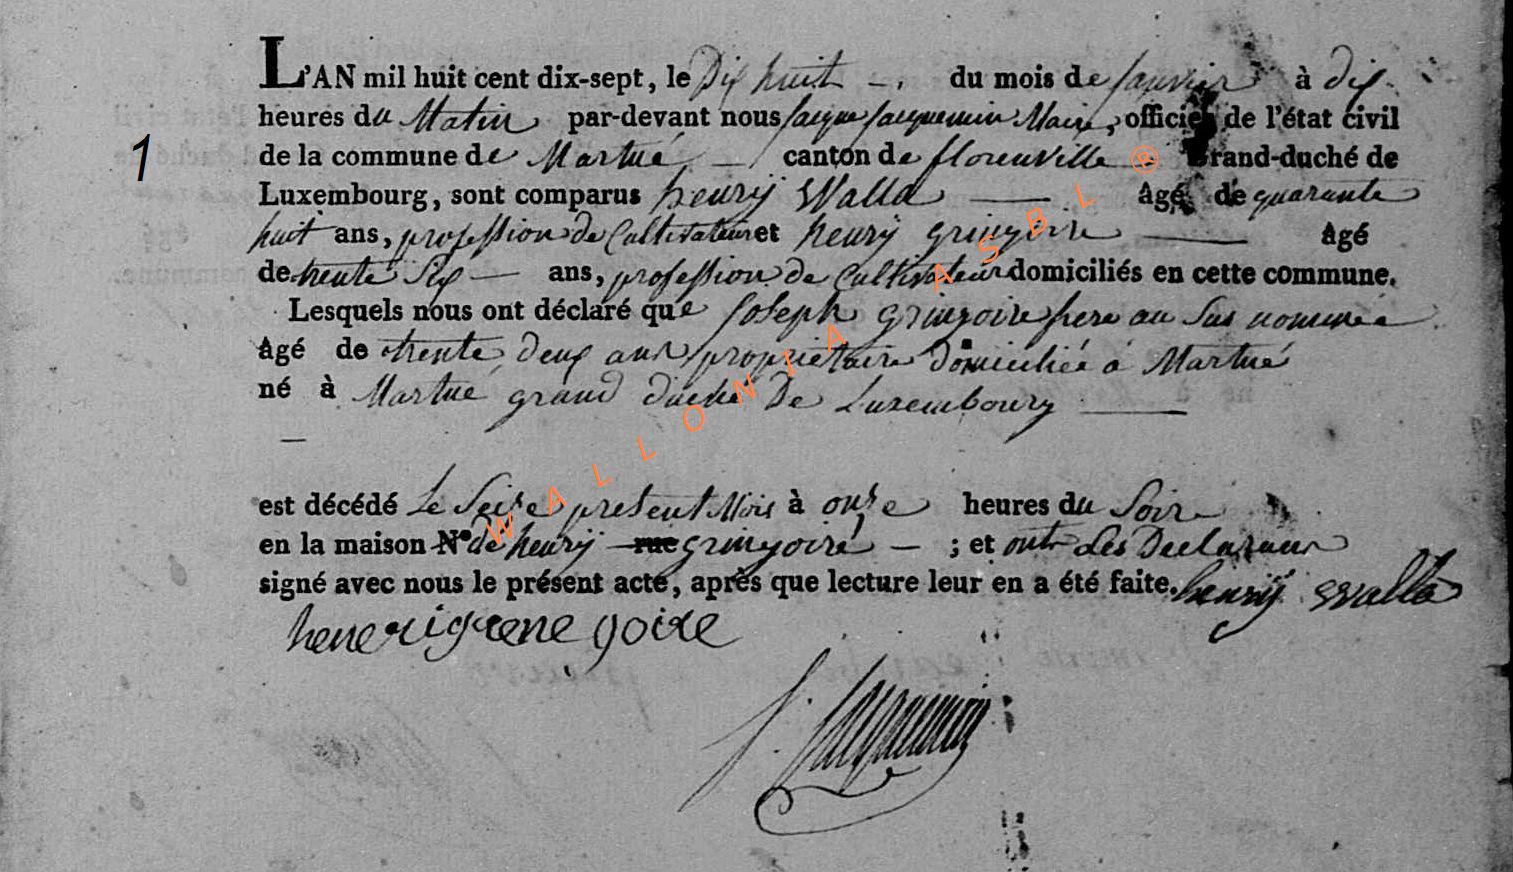 L'AN mil huit cent dix-sept, le Dix huit - . du mois de janvier à dix
heures du Matin par-devant nous jacque jacquemin Maire, officier de l'état civil
1
de la commune de Martué — canton de florenville ® Grand-duché de
Luxembourg, sont comparus henrij Walla — âgé de quarante
huit ans, profession de Cultivateur et henrij gringoire — âgé
de trente Six — ans, profession de Cultivateur domiciliés en cette commune.
Lesquels nous ont déclaré que joseph gringoire frere au Sus nommée
âgé de trente deux ans propriétaire domiciliée á Martué
né à Martué grand duché De Luxembourg —
—
est décédé Le Seize present Mois à onze heures du Soir
en la maison N° de henrij rue gringoire — ; et ont Les Declarans
signé avec nous le présent acte, après que lecture leur en a été faite. henrij Walla
henerigrenegoire
j. jacquemin
WALLONIA ASBL ®